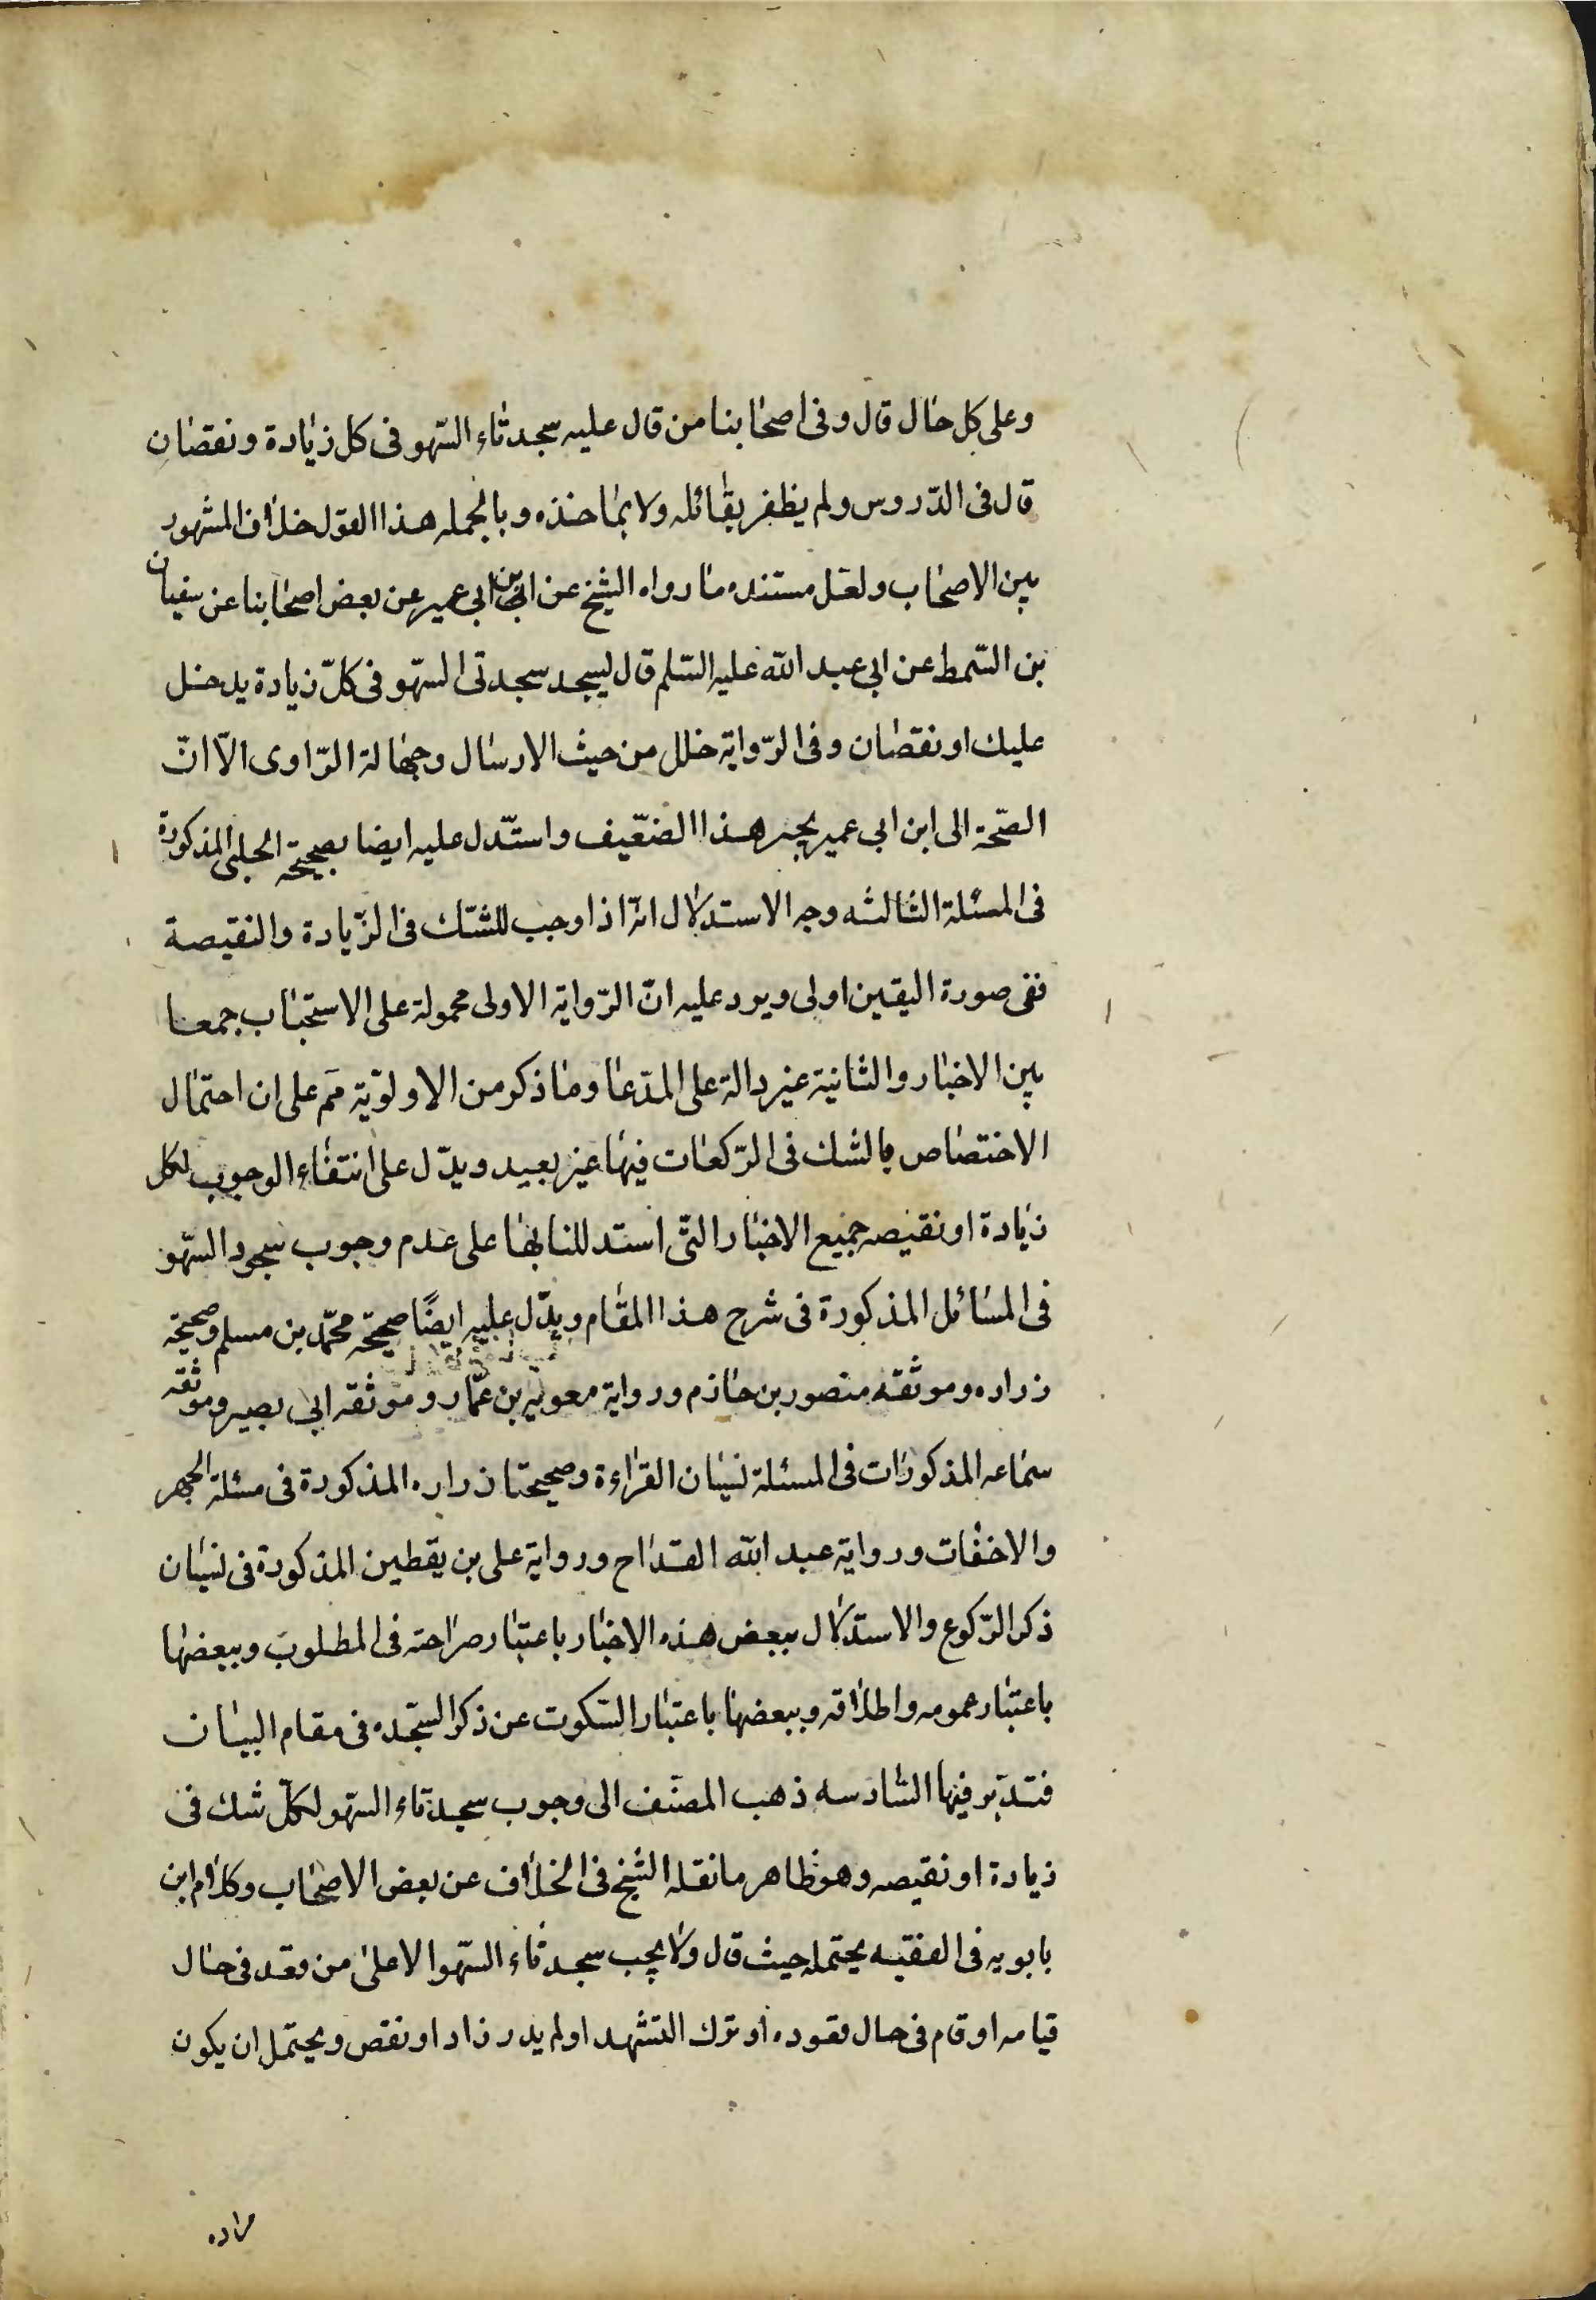 وعلى كل حال قال وفى اصحابنا من قال عليه سجدتاء السّهو فى كل زيادة ونقصان
قال فى الدّروس ولم يظفر بقائله ولا بماخذه وبالجمله هذا القول خلاف المشهور
بين الاصحاب ولعل مستنده ما رواه الشيخ عن ابن ابى عمير عن بعض اصحابنا عن سفيان
بن السّمط عن ابى عبد الله عليه السّلم قال ليسجد سجدتى السّهو فى كلّ زيادة يدخل
عليك او نقصان وفى الرّواية خلل من حيث الارسال وجهالة الرّاوى الّا انّ
الصّحة الى ابن ابى عمير يجبر هذا الضعّيف واستدّل عليه ايضا بصحيحة الحلبى المذكورة
فى المسئلة الثالثه وجه الاستدلال انّه اذا وجب للشّك فى الزّيادة والنقيصة
ففى صورة اليقين اولى ويرد عليه انّ الرّواية الاولى محمولة على الاستحباب جمعا
بين الاخبار والثانية غير دالة على المدّعا وما ذكر من الاولوّية مَم على ان احتمال
الاختصاص بالشك فى الرّكعات فيها غير بعيد ويدّل على انتفاء الوجوب لكل
زيادة او نقيصه جميع الاخبار التّى استدللنا بها على عدم وجوب سجود السّهو
فى المسائل المذكورة فى شرح هذا المقام ويدّل عليه ايضًا صحيحة محمّد بن مسلم وصحيحة
زراره وموثقه منصور بن حازم ورواية معوية بن عمّار وموثقه ابى بصير وموثقه
سماعه المذكورات فى المسئلة نسيان القراءة وصحيحتا زراره المذكورة فى مسئلة الجهر
والاخفات ورواية عبد الله القدّاح ورواية على بن يقطين المذكورة فى نسيان
ذكر الرّكوع والاستدلال ببعض هذه الاخبار باعتبار صراحته فى المطلوب وببعضها
باعتبار عمومه واطلاقه وببعضها باعتبار السّكوت عن ذكر السّجده فى مقام البيان
فتدّبر فيها السّادسه ذهب المصنّف الى وجوب سجدتاء السّهو لكلّ شك فى
زيادة او نقيصه وهو ظاهر ما نقله الشيخ فى الخلاف عن بعض الاصحاب وكلام ابن
بابويه فى الفقيه يحتمله حيث قال ولا يجب سجدتاء السّهو الا على من قعد فى حال
قيامه او قام فى حال قعوده او ترك التشهد او لم يدر زاد او نقص ويحتمل ان يكون
مراده